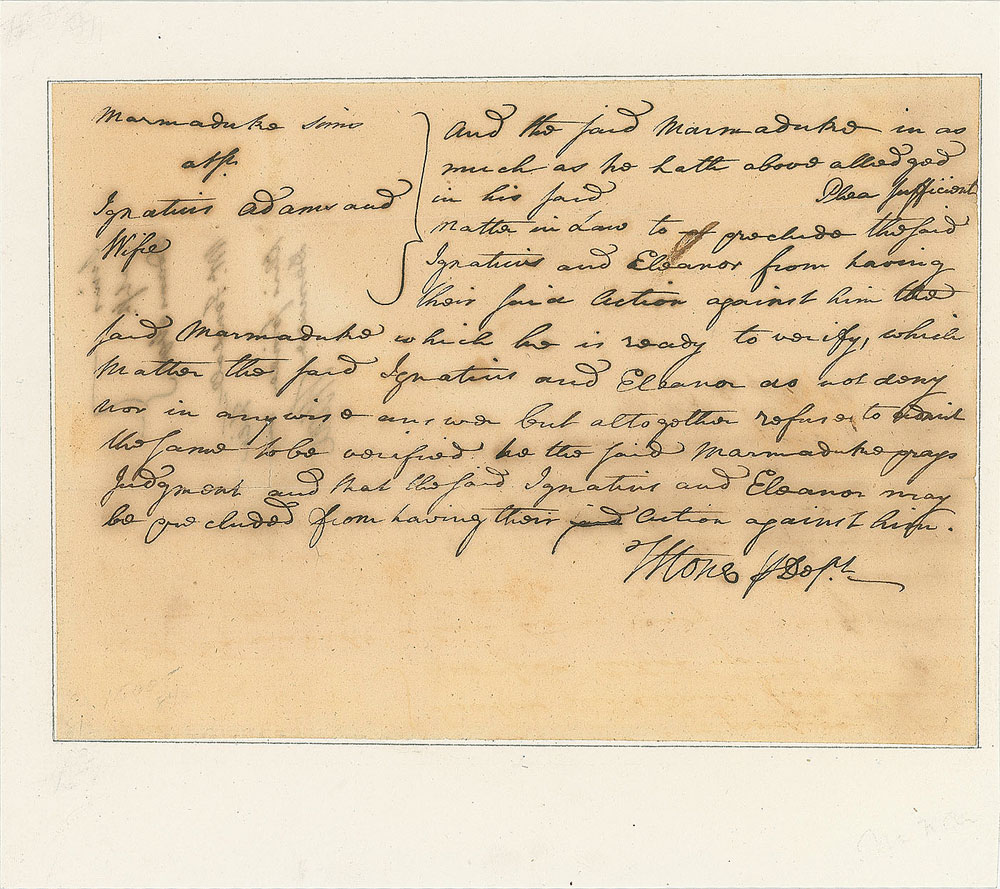 Marmaduke Sims
ats.
Ignatius Adams and
Wife
And the said Marmaduke in as
much as he hath above alledged
in his said Plea sufficient
Matter in Law to preclude the said
Ignatius and Eleanor from having
their said Action against him the
said Marmaduke which he is ready to verify, which
Matter the said Ignatius and Eleanor do not deny
nor in anywise answer but altogether refuse to admit
the same to be verified he the said Marmaduke prays
Judgment and that the said Ignatius and Eleanor may
be precluded from having their said Action against him.
TStone Deft.